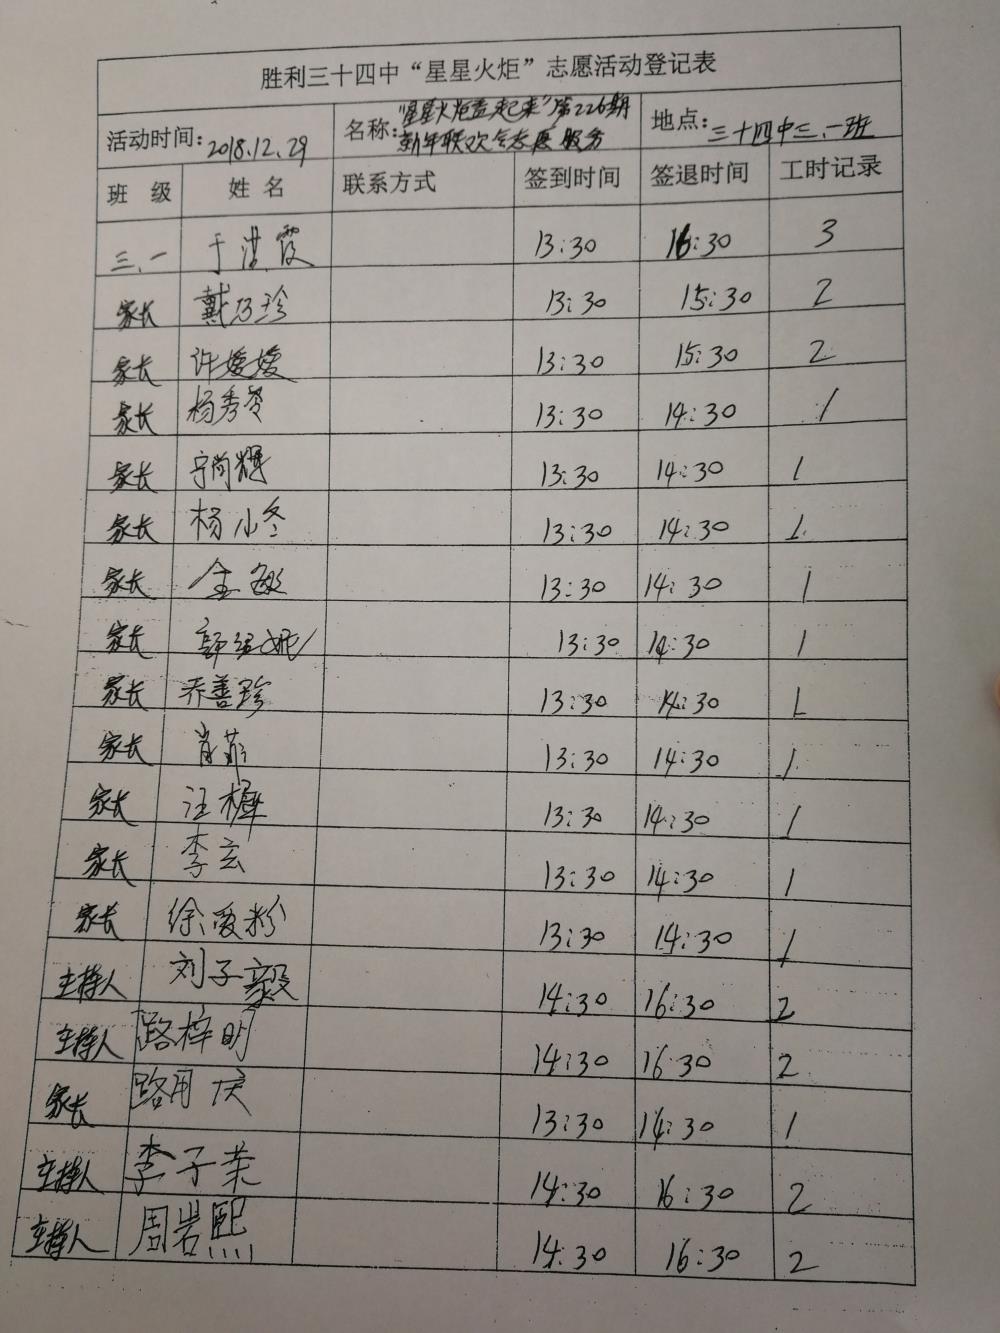 胜利三十四中“星星火炬”志愿活动登记表
活动时间: 2018.12.29 名称: "星星火炬燃起来"第226期 新年联欢会志愿服务 地点: 三十四中三.一班
班 级 姓 名 联系方式 签到时间 签退时间 工时记录
三.一 于洪霞 13:30 16:30 3
家长 戴乃珍 13:30 15:30 2
家长 许媛媛 13:30 15:30 2
家长 杨秀琴 13:30 14:30 1
家长 宁尚辉 13:30 14:30 1
家长 杨小冬 13:30 14:30 1
家长 金敏 13:30 14:30 1
家长 13:30 14:30 1
家长 乔善珍 13:30 14:30 1
家长 肖菲 13:30 14:30 1
家长 汪樨 13:30 14:30 1
家长 李玄 13:30 14:30 1
家长 徐爱粉 13:30 14:30 1
主持人 刘子毅 14:30 16:30 2
主持人 路梓明 14:30 16:30 2
家长 路用庆 13:30 14:30 1
主持人 李子茉 14:30 16:30 2
主持人 周岩熙 14:30 16:30 2